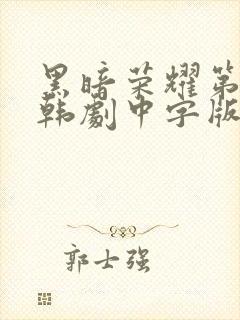 黑暗荣耀第
韩劇中字版
郭士强